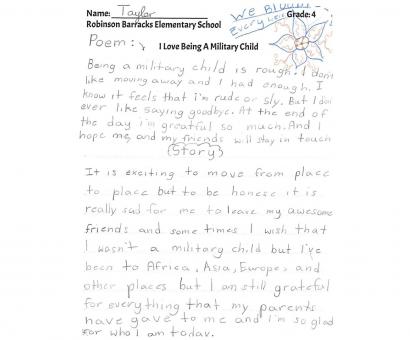 Name: Taylor
we Bloom
Every
Grade: 4
Robinson Barracks Elementary School
Poem:
I Love Being A Military Child
Being a military child is rough. I don't
like moving away and I had enough. I
know it feels that i'm rude or sly. But I don
ever like saying goodbye. At the end of
the day i'm greatful so much. And I
hope me, and my friends will stay in touch
(Story)
It is exciting to move from place
to place but to be honese it is
really sad for me to leave my awesome
friends and some times I wish that
I wasn't a military child but I've
been to Africa, Asia, Europe, and
other places but I am still grateful
for everything that my parents
have gave to me and i'm so glad
for who I am today.